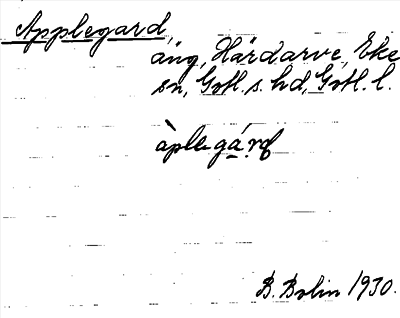 Applegard,
äng, Hårdarve, Eke
sn, Gotl. s. hd, Gotl. l.
àplegá̱rd
B. Bolin 1930.